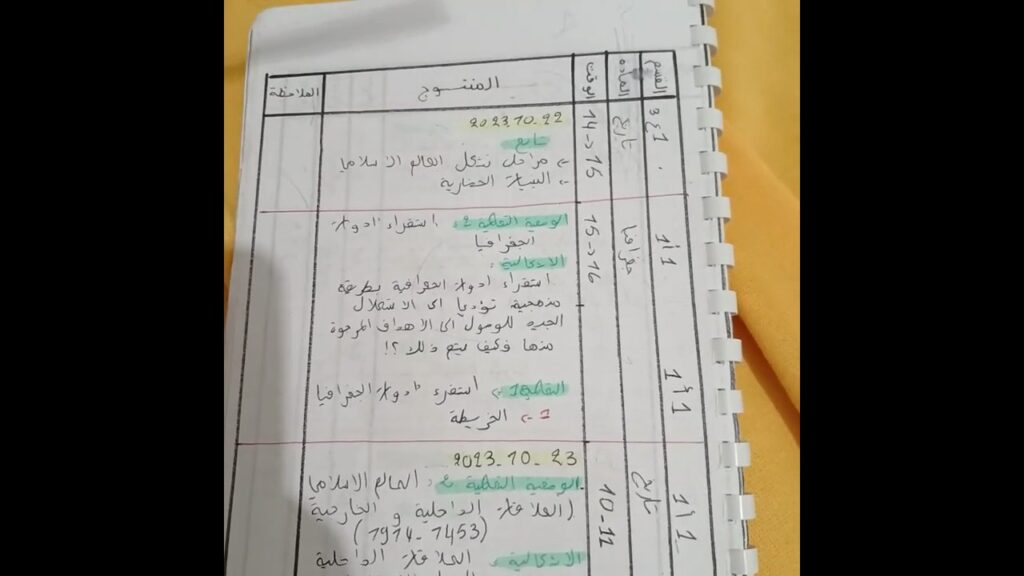 القسم المادة الوقت المنتوج الملاحظة
1 ع 3 تاريخ 14 → 15
2023.10.22
تابع
- مراحل تشكل العالم الاسلامي
- البنيات الحضارية
1 أ 1 جغرافيا 15 → 16
الوضعية التعلمية 2: استقراء ادوات
الجغرافيا
الاشكالية:
استقراء ادوات الجغرافية بطريقة
منهجية تؤدي الى الاستغلال
الجيد للوصول الى الاهداف المرجوة
منها وكيف يتم ذلك ؟!
1 أ 1
1 ← استقراء ادوات الجغرافيا
1 - الخريطة
1 أ 1 تاريخ 10-11
2023-10-23
الوضعية التعلمية 2: العالم الاسلامي
(العلاقات الداخلية و الخارجية
(1914-1453)
الاشكالية: العلاقات الداخلية